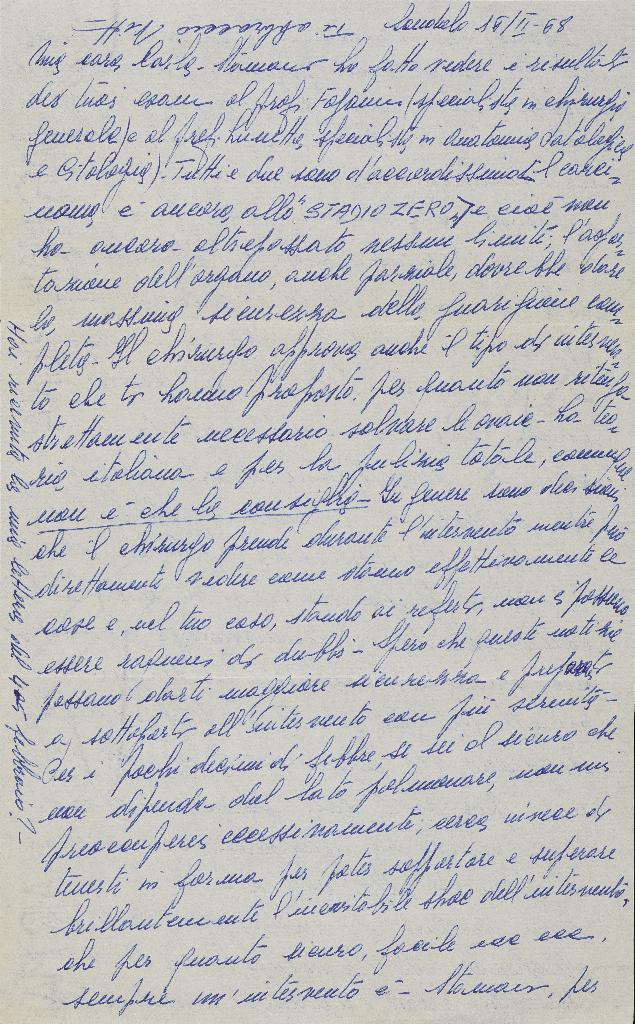 Sondalo 16/II-68
Mia cara Carla - Stamani ho fatto vedere i risultati
dei tuoi esami al prof. (specialista in chirurgia
generale) e al prof. specialista in anatomia patologica
e citologia). Tutti e due sono d'accordissimo: il carci=
noma è ancora allo "STADIO ZERO", e cioè non
ha ancora oltrepassato nessun limite; l'aspor=
tazione dell'organo, anche parziale, dovrebbe dare
la massima sicurezza della guarigione com=
pleta - Il chirurgo approva anche il tipo di interven=
to che ti hanno proposto, per quanto non ritenga
strettamente necessario salvare le ovaie - ha teo=
ria italiana e per la pulizia totale, comunque
non è che la consigli - In genere sono decisioni
che il chirurgo prende durante l'intervento mentre può
direttamente vedere come stanno effettivamente le
cose e, nel tuo caso, stando ai referti, non ci possono
essere ragioni di dubbi - Spero che queste notizie
possano darti maggiore sicurezza e prepararti
a sottoporti all'intervento con più serenità -
Per i pochi decimi di febbre, se sei al sicuro che
non dipenda dal lato polmonare, non mi
preoccuperei eccessivamente; cerca invece di
tenerti in forma per poter sopportare e superare
brillantemente l'inevitabile shoc dell'intervento,
che per quanto sicuro, facile ecc ecc,
sempre un'intervento è - Stamani, per
Hai ricevuto la mia lettera del febbraio? -
Ti abbraccio